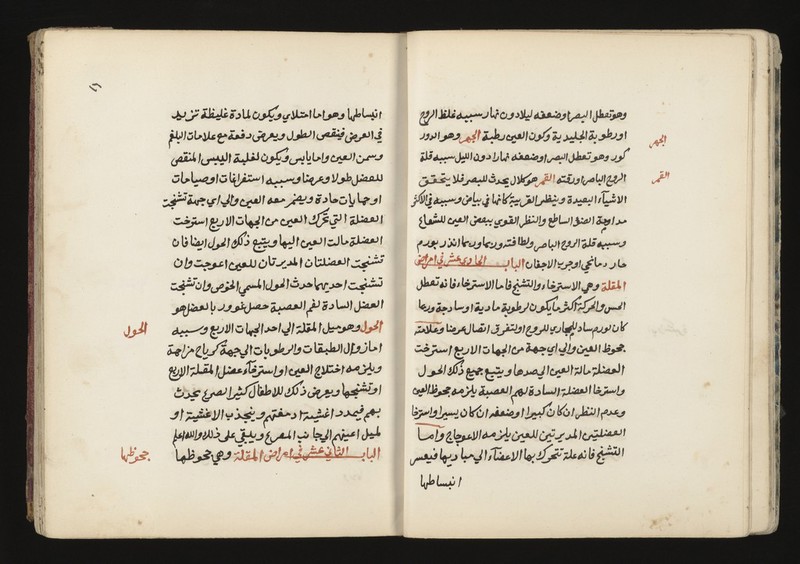 وهو تعطل البصر او ضعفه ليلا دون نهار سببه غلظ الروح
او رطوبة الجليدية وكون العين رطبة الجهر وهو الدور
الجهر
كور وهو تعطل البصر او ضعفه نهارا دون الليل سببه قلة
الروح الباصر او رقته القمر هو كلال يحدث للبصر فلا يتحقق
القمر
الاشياء البعيدة وينظر القريبة كانها في بياض وسببه في الاكثر
مداومة الضوء الساطع والنظر القوي ببعض العين للشعاع
وسببه قلة الروح الباصر ولطافته وربما انذر بورم
حار دماغي او جرب الاجفان الباب الحادي عشر في امراض
المقلة وهي الاسترخاء والتشنج فاما الاسترخاء فانه تعطل
الحس والحركة اكثر ما يكون لرطوبة مادية او ساذجة وربما
كان لورم ساد للمجاري للروح او لتفرق اتصال عرضا وعلامته
جحوظ العين والي اي جهة من الجهات الاربع استرخت
العضلة مالت العين الي ضدها ويتبع جميع ذلك الحول
واسترخا العضلة السادة لفم العصبة يلزمه جحوظ العين
وعدم النظر ان كان كبيرا او ضعفه ان كان يسيرا واسترخا
العضلتين المديرتين للعين يلزمه الاعوجاج واما
التشنج فانه علة تتحرك بها الاعضاء الي مباديها فيعسر
انبساطها
انبساطها وهو اما امتلاي ويكون لمادة غليظة تزيد
في العرض فينقص الطول ويعرض دفعة مع علامات البلغم
وسمن العين واما يابس ويكون لغلبة اليبس المنقص
للعضل طولا وعرضا وسببه استفراغات او صياحات
او حمايات حادة ويضمر معه العين والي اي جهة تشنجت
العضلة التي تحرك العين من الجهات الاربع استرخت
العضلة مالت العين اليها ويتبع ذلك الحول ايضا فان
تشنجت العضلتان المديرتان للعين اعوجت وان
تشنجت احديهما حدث الحول المسمي الخوص وان تشنجت
العضل السادة لفم العصبة حصل غوور بالعضل هو
الحول وهو ميل المقلة الي احد الجهات الاربع وسببه
الحول
اما زوال الطبقات والرطوبات الي جهة كرياح مزاحمة
ويلزمه اختلاج العين او استرخاء عضل المقلة الاربع
او تشنجها ويعرض ذلك للاطفال كثيرا لصرع يحدث
بهم فيمدد اغشية ادمغتهم وينجذب الاغشية او
لميل اعينهم الي جانب المصرع ويبقي على ذلك والله اعلم
الباب الثاني عشر في امراض المقلة وهي جحوظها
جحوظها